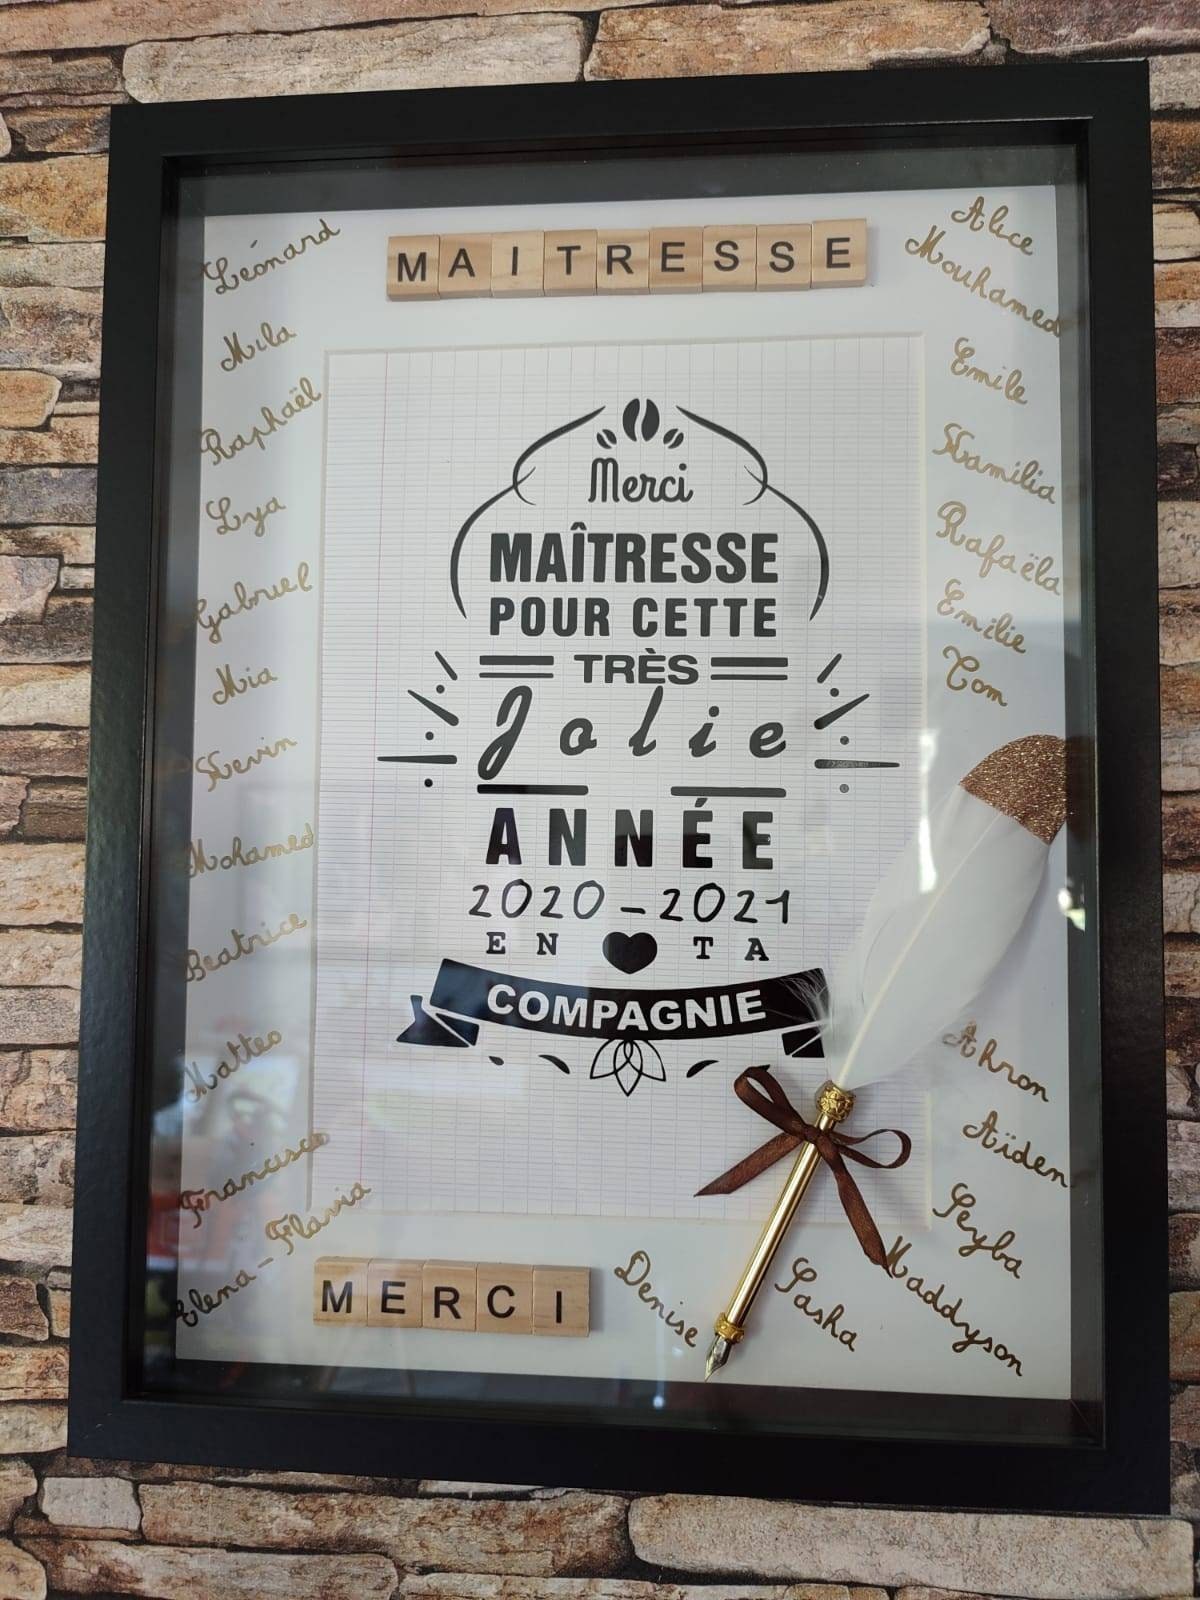 MAITRESSE
Léonard
Mila
Raphaël
Lya
Gabriel
Mia
Kevin
Mohamed
Beatrice
Matteo
Francisco
Elena-Flavia
Merci
MAÎTRESSE
POUR CETTE
TRÈS
Jolie
ANNÉE
2020-2021
EN TA
COMPAGNIE
Alice
Mouhamed
Emile
Kamilia
Rafaëla
Emilie
Tom
Ahron
Aïden
Seyba
Maddyson
Sasha
Denise
MERCI